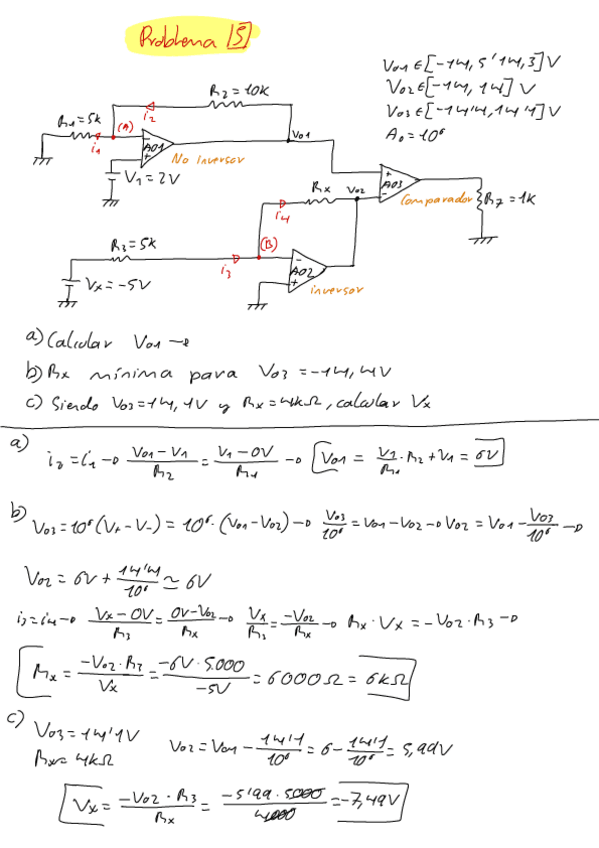 Problema 15
R2=10k
Vo1 ∈ [-14,5'14,3] V
Vo2 ∈ [-14, 14] V
Vo3 ∈ [-14'4, 14'1] V
Ao = 10⁶
R1=5k
i2
(A)
i1
AO1
No inversor
Vo1
V1=2V
Rx
Vo2
AO3
Comparador
R7=1k
i4
R3=5k
(B)
i3
AO2
inversor
Vx=-5V
a) Calcular Vo1 →
b) Rx mínima para Vo3 = -14,4V
c) Siendo Vo3=14,1V y Rx=4kΩ, calcular Vx
a) i2=i1 → (Vo1-V1)/R2 = (V1-0V)/R1 → Vo1 = V1/R1 · R2 + V1 = 6V
b) Vo3=10⁶(V+-V-) = 10⁶·(Vo1-Vo2) → Vo3/10⁶ = Vo1-Vo2 → Vo2 = Vo1 - Vo3/10⁶ →
Vo2 = 6V + 14'4/10⁶ ≃ 6V
i3=i4 → (Vx-0V)/R3 = (0V-Vo2)/Rx → Vx/R3 = -Vo2/Rx → Rx·Vx = -Vo2·R3 →
Rx = (-Vo2·R3)/Vx = (-6V·5.000)/-5V = 6000Ω = 6kΩ
c) Vo3=14'1V
Rx=4kΩ
Vo2 = Vo1 - 14'1/10⁶ = 6 - 14'1/10⁶ = 5,99V
Vx = (-Vo2·R3)/Rx = (-5'99·5.000)/4.000 = -7,49V